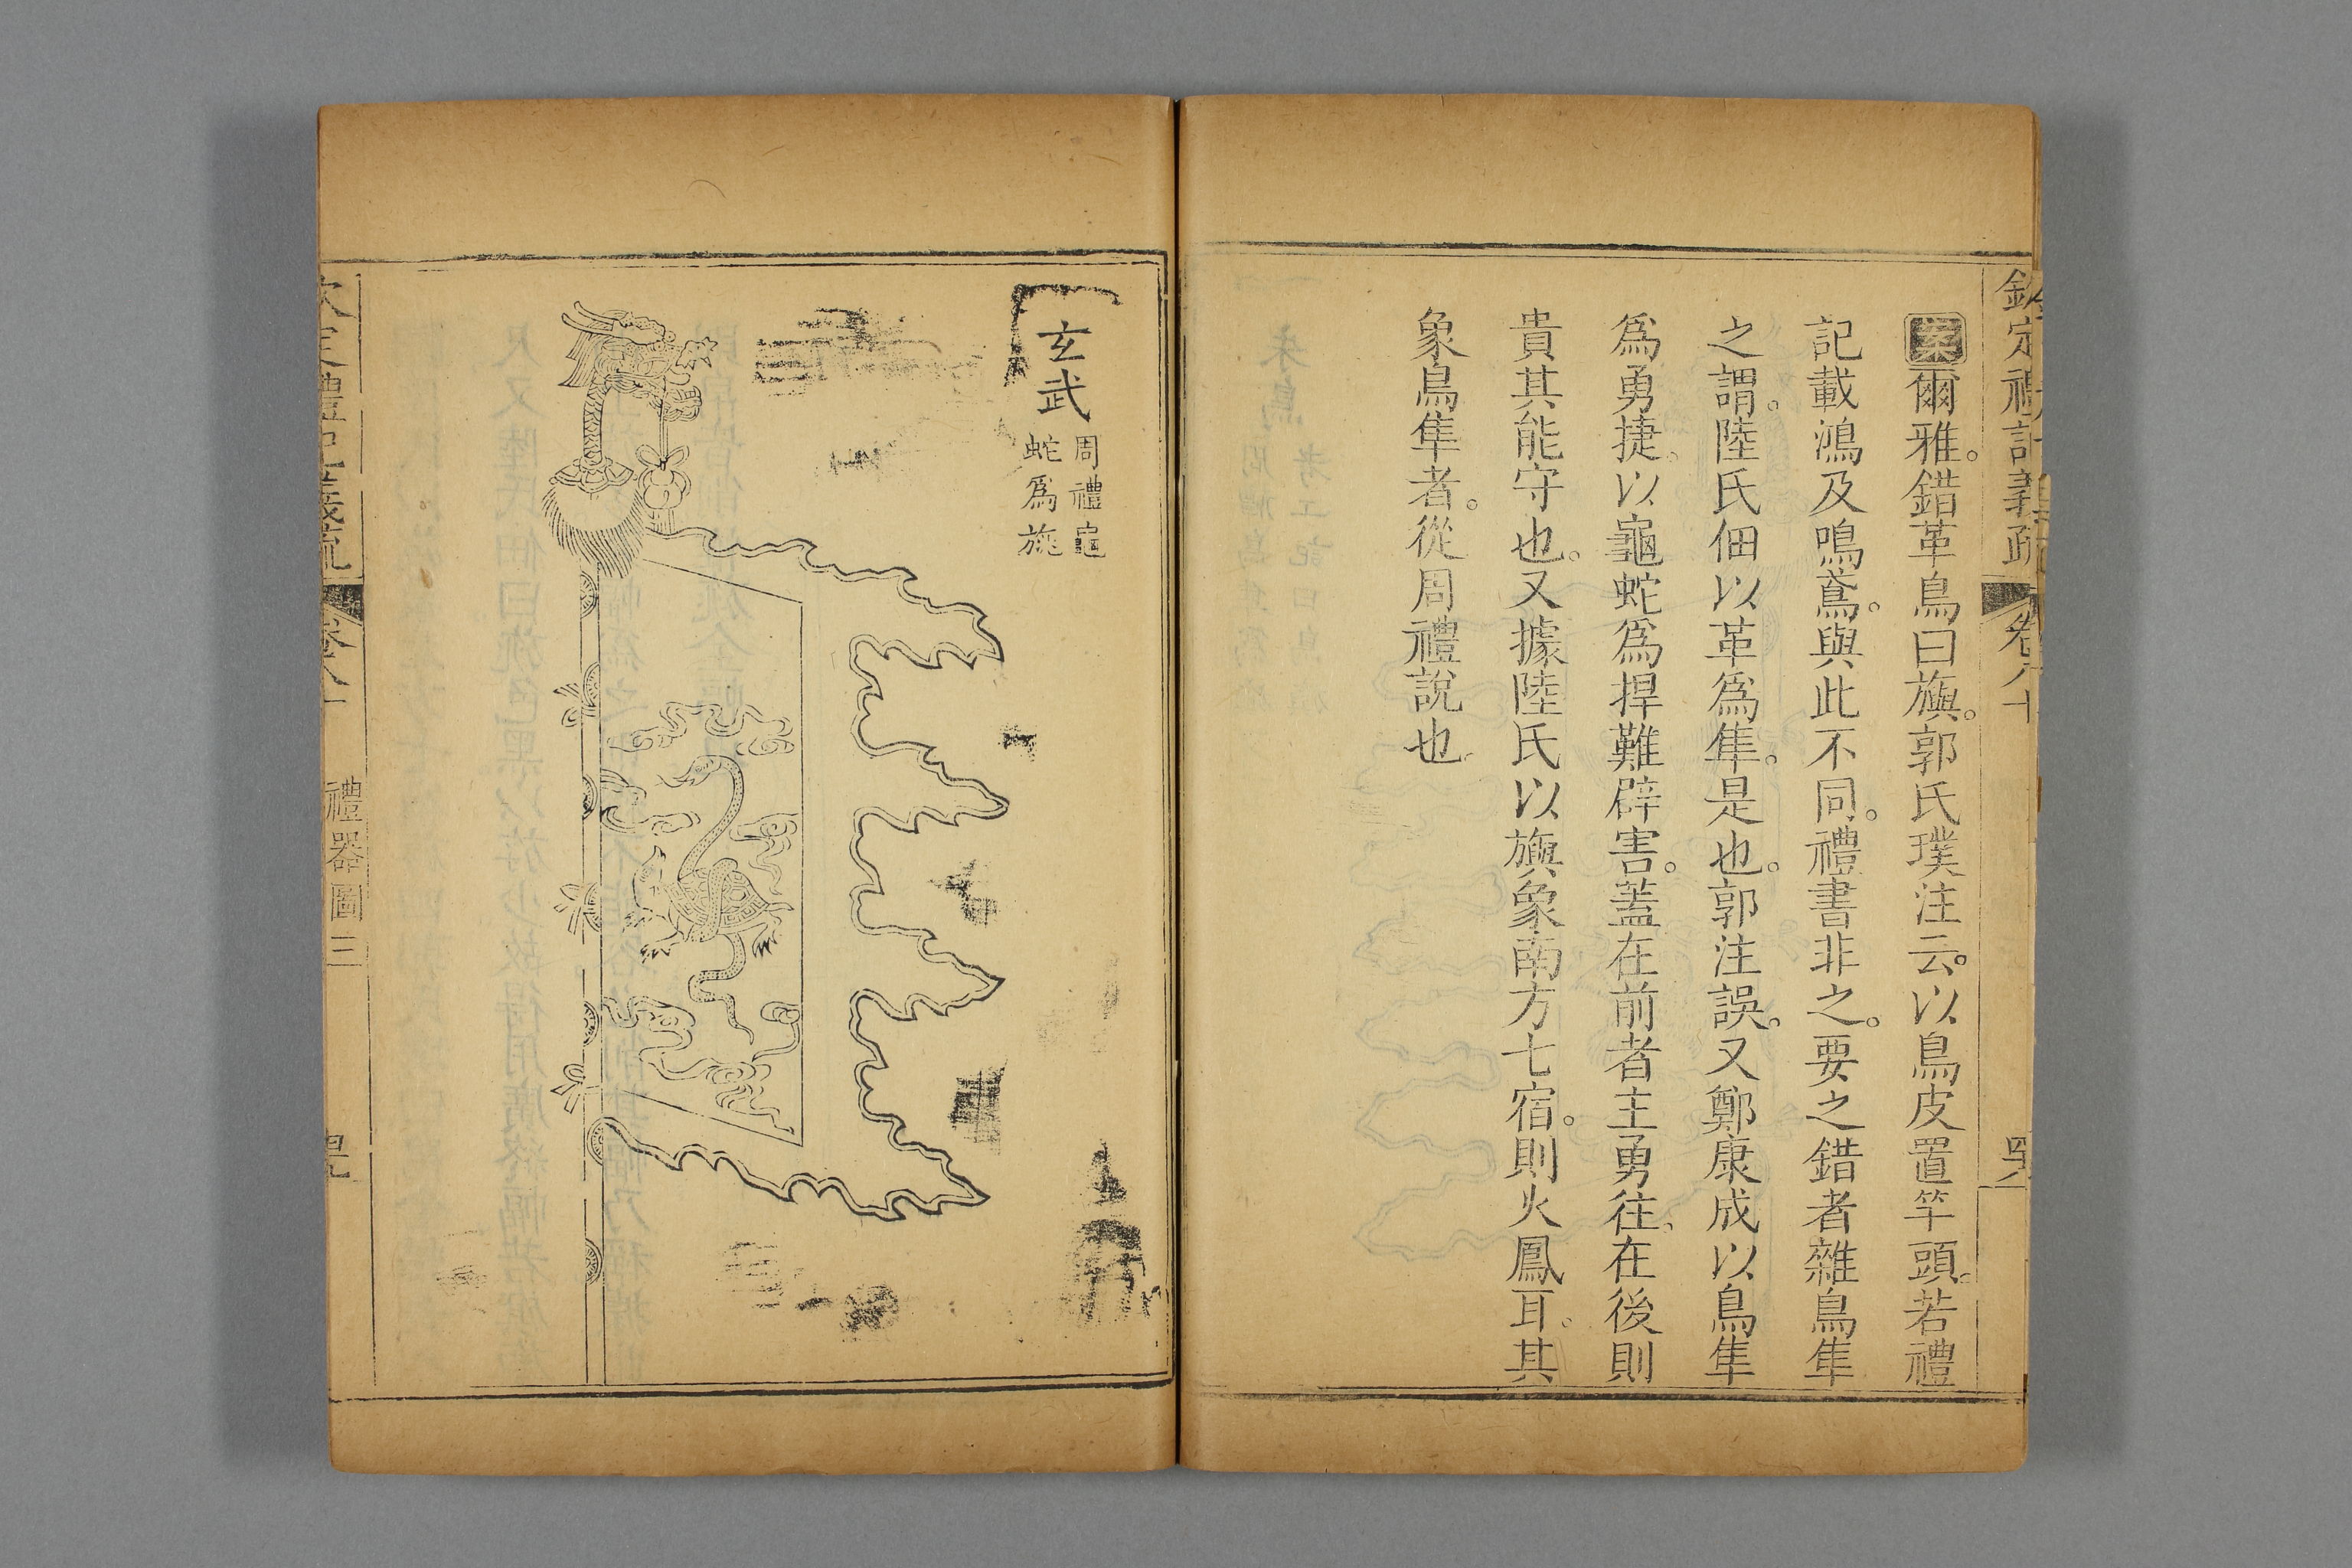 欽定禮記義疏 卷八十
案爾雅。錯革鳥曰旟。郭氏璞注云。以鳥皮置竿頭。若禮
記載鴻及鳴鳶。與此不同。禮書非之。要之錯者雜鳥隼
之謂。陸氏佃以革爲隼。是也。郭注誤。又鄭康成以鳥隼
爲勇捷。以龜蛇爲捍難辟害。蓋在前者主勇往。在後則
貴其能守也。又據陸氏以旟象南方七宿。則火鳳耳。其
象鳥隼者。從周禮說也
玄武
周禮龜
蛇爲旐
禮器圖三